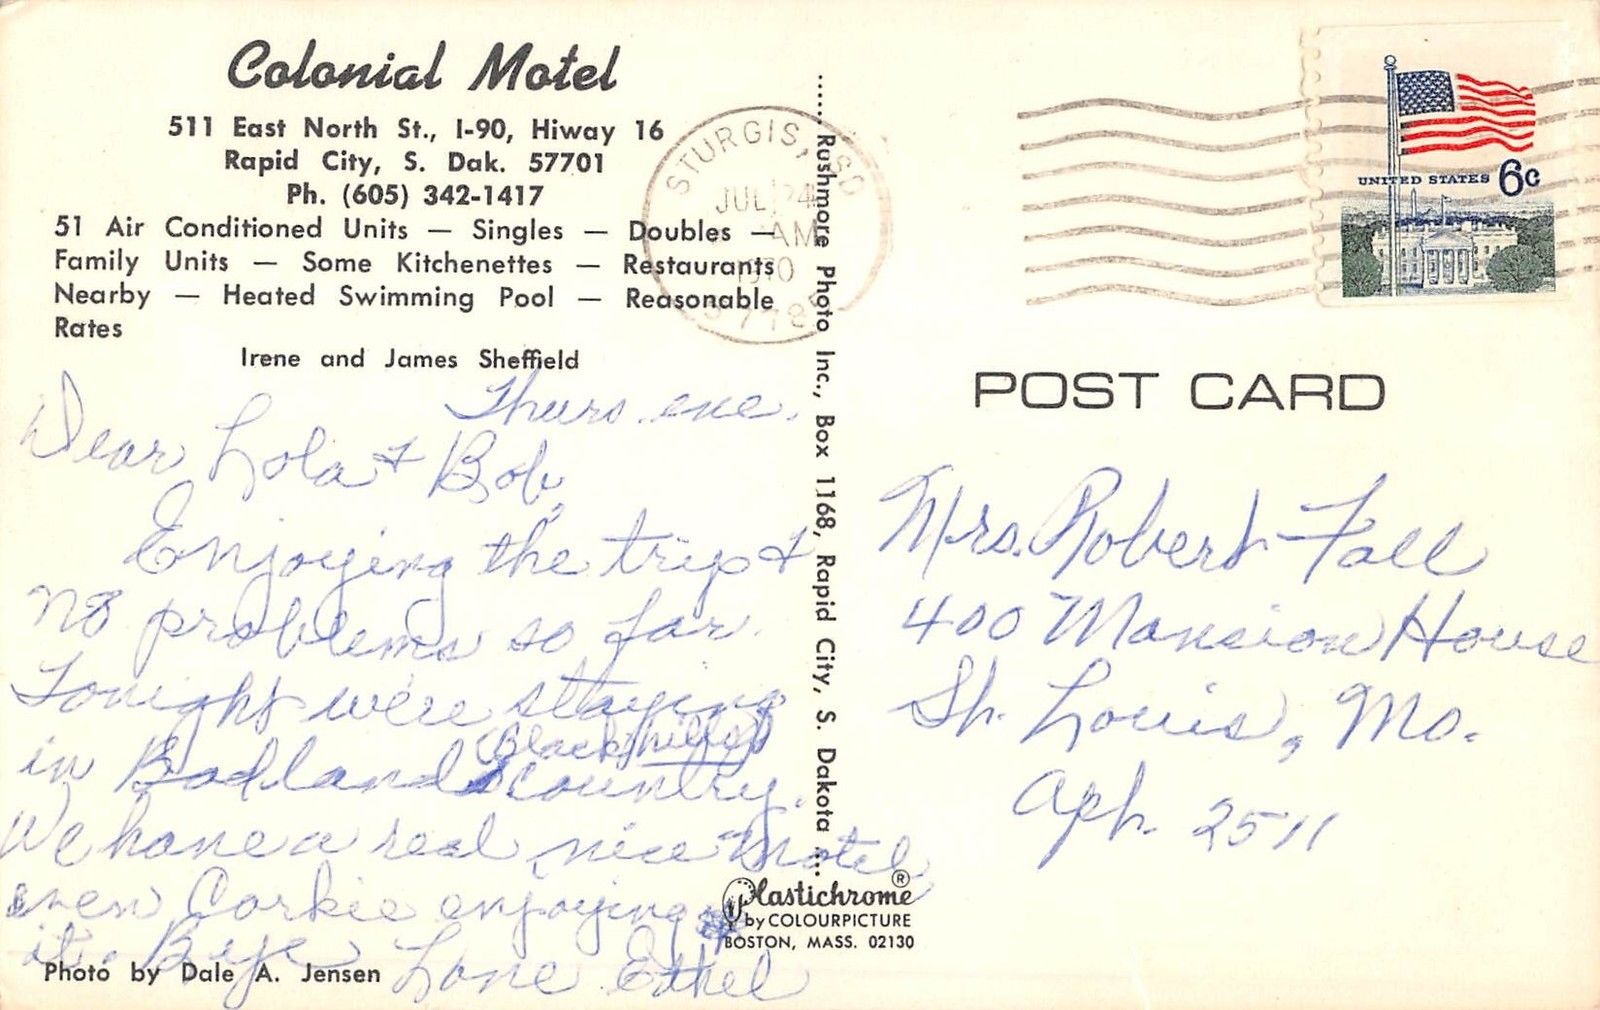 Colonial Motel
511 East North St., I-90, Hiway 16
Rapid City, S. Dak. 57701
Ph. (605) 342-1417
51 Air Conditioned Units — Singles — Doubles —
Family Units — Some Kitchenettes — Restaurants
Nearby — Heated Swimming Pool — Reasonable
Rates
Irene and James Sheffield
Thurs. eve.
Dear Lola & Bob,
Enjoying the trip &
no problems so far.
Tonight we're staying
(Black Hills)
in Badland country.
We have a real nice Motel
even Corkie enjoying
it. Bye Love Ethel
Photo by Dale A. Jensen
Rushmore Photo Inc., Box 1168, Rapid City, S. Dakota
Plastichrome ®
by COLOURPICTURE
BOSTON, MASS. 02130
STURGIS, SD
JUL 24
AM
1970
UNITED STATES 6c
POST CARD
Mrs. Robert Fall
400 Mansion House
St. Louis, Mo.
Apt. 2511